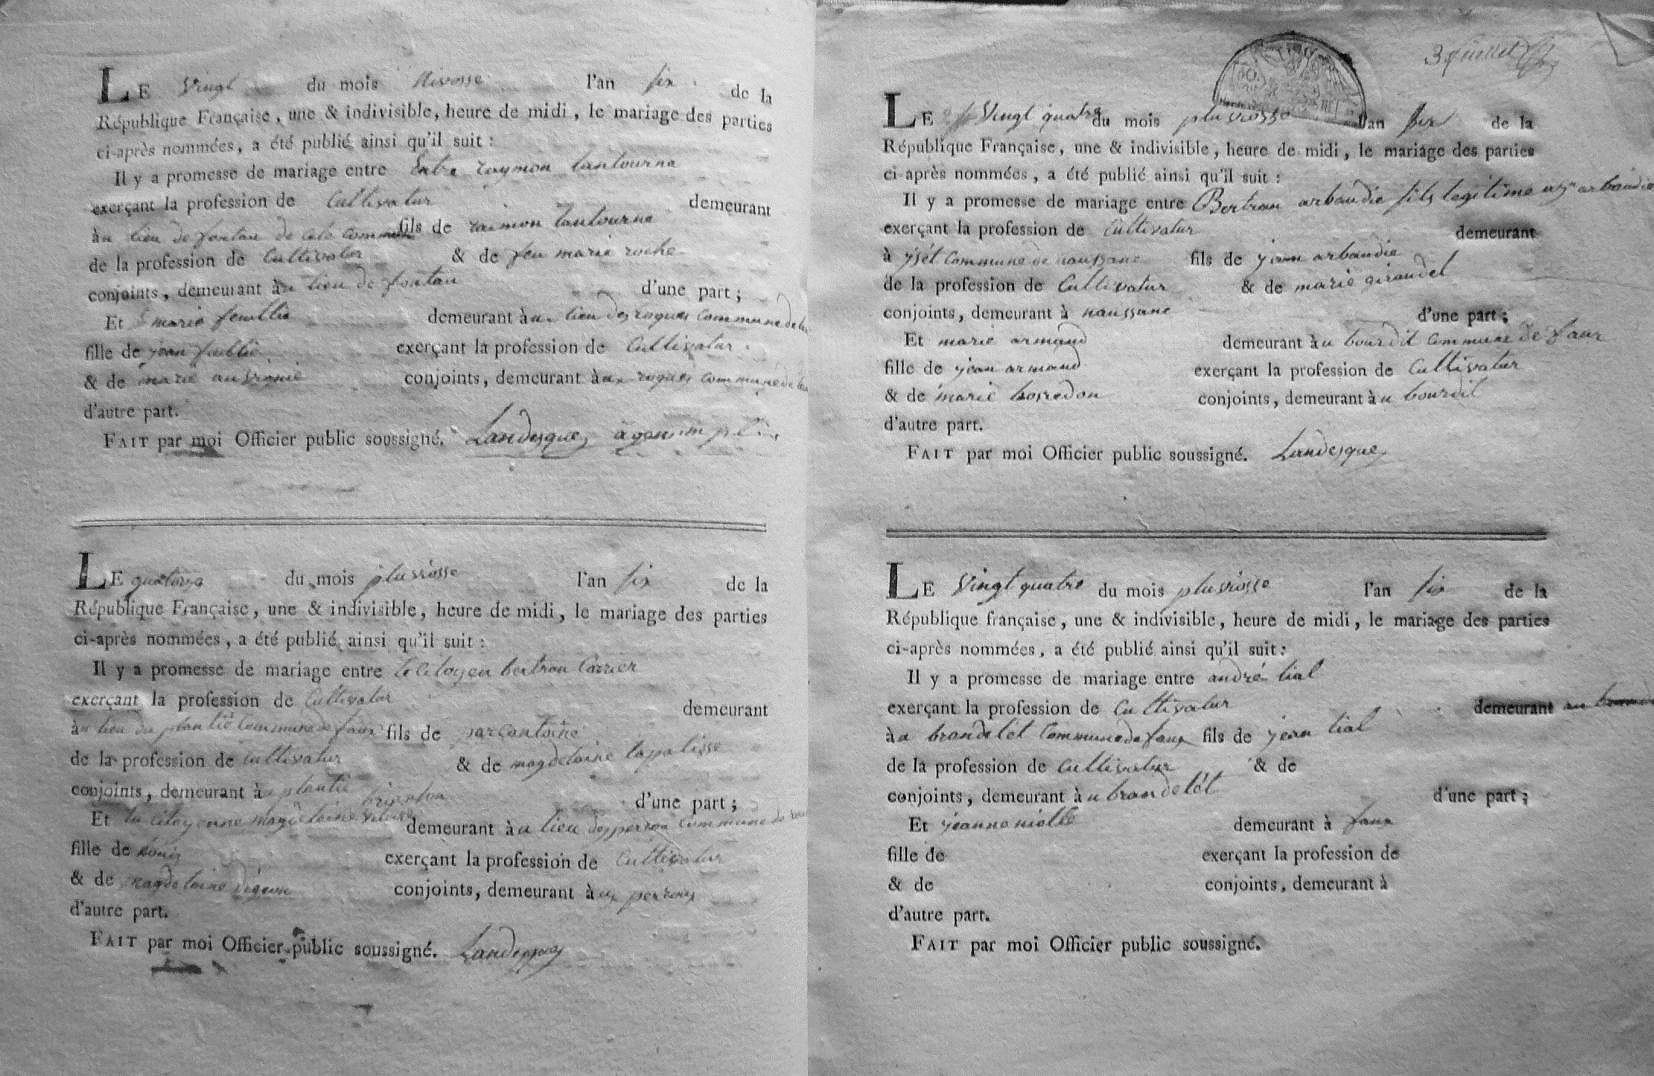 LE Vingt du mois Nivosse l'an six de la
République Française, une & indivisible, heure de midi, le mariage des parties
ci-après nommées, a été publié ainsi qu'il suit :
Il y a promesse de mariage entre Entre raymon tantourne
exerçant la profession de Cultivatur demeurant
àu lieu de fontau de fils de raimon tantourne
de la profession de Cultivatur & de feu marie roche
conjoints, demeurant àu lieu de fontau d'une part ;
Et marie feuillie demeurant àu lieu des roques Commune de
fille de jean exerçant la profession de Cultivatur
& de marie conjoints, demeurant àux roques commune de
d'autre part.
FAIT par moi Officier public soussigné. Landesque,
LE quatorze du mois pluviosse l'an six de la
République Française, une & indivisible, heure de midi, le mariage des parties
ci-après nommées, a été publié ainsi qu'il suit :
Il y a promesse de mariage entre Le Citoyen bertrau Carrier
exerçant la profession de Cultivatur demeurant
àu lieu du plantié Commune de faux fils de
de la profession de Cultivatur & de magdelaine
conjoints, demeurant àu plantié d'une part ;
Et la citoyenne magdelaine demeurant àu lieu des perrou commune de
fille de exerçant la profession de Cultivatur
& de magdelaine conjoints, demeurant àux perroux
d'autre part.
FAIT par moi Officier public soussigné. Landesque
3 juillet
LE Vingt quatre du mois pluviosse l'an six de la
République Française, une & indivisible, heure de midi, le mariage des parties
ci-après nommées, a été publié ainsi qu'il suit :
Il y a promesse de mariage entre Bertrau arbaudie fils legitime arbaudie
exerçant la profession de Cultivatur demeurant
à Commune de naussane fils de jean arbaudie
de la profession de Cultivatur & de marie giraudel
conjoints, demeurant à naussane d'une part ;
Et marie armand demeurant àu bourdil commune de faux
fille de jean armand exerçant la profession de Cultivatur
& de marie boiredon conjoints, demeurant àu bourdil
d'autre part.
FAIT par moi Officier public soussigné. Landesque,
LE Vingt quatre du mois pluviosse l'an six de la
République française, une & indivisible, heure de midi, le mariage des parties
ci-après nommées, a été publié ainsi qu'il suit :
Il y a promesse de mariage entre andré tial
exerçant la profession de Cultivatur demeurant
àu brandetét Commune de faux fils de jean tial
de la profession de Cultivatur & de
conjoints, demeurant àu brandetét d'une part ;
Et jeanne niolle demeurant à faux
fille de exerçant la profession de
& de conjoints, demeurant à
d'autre part.
FAIT par moi Officier public soussigné.